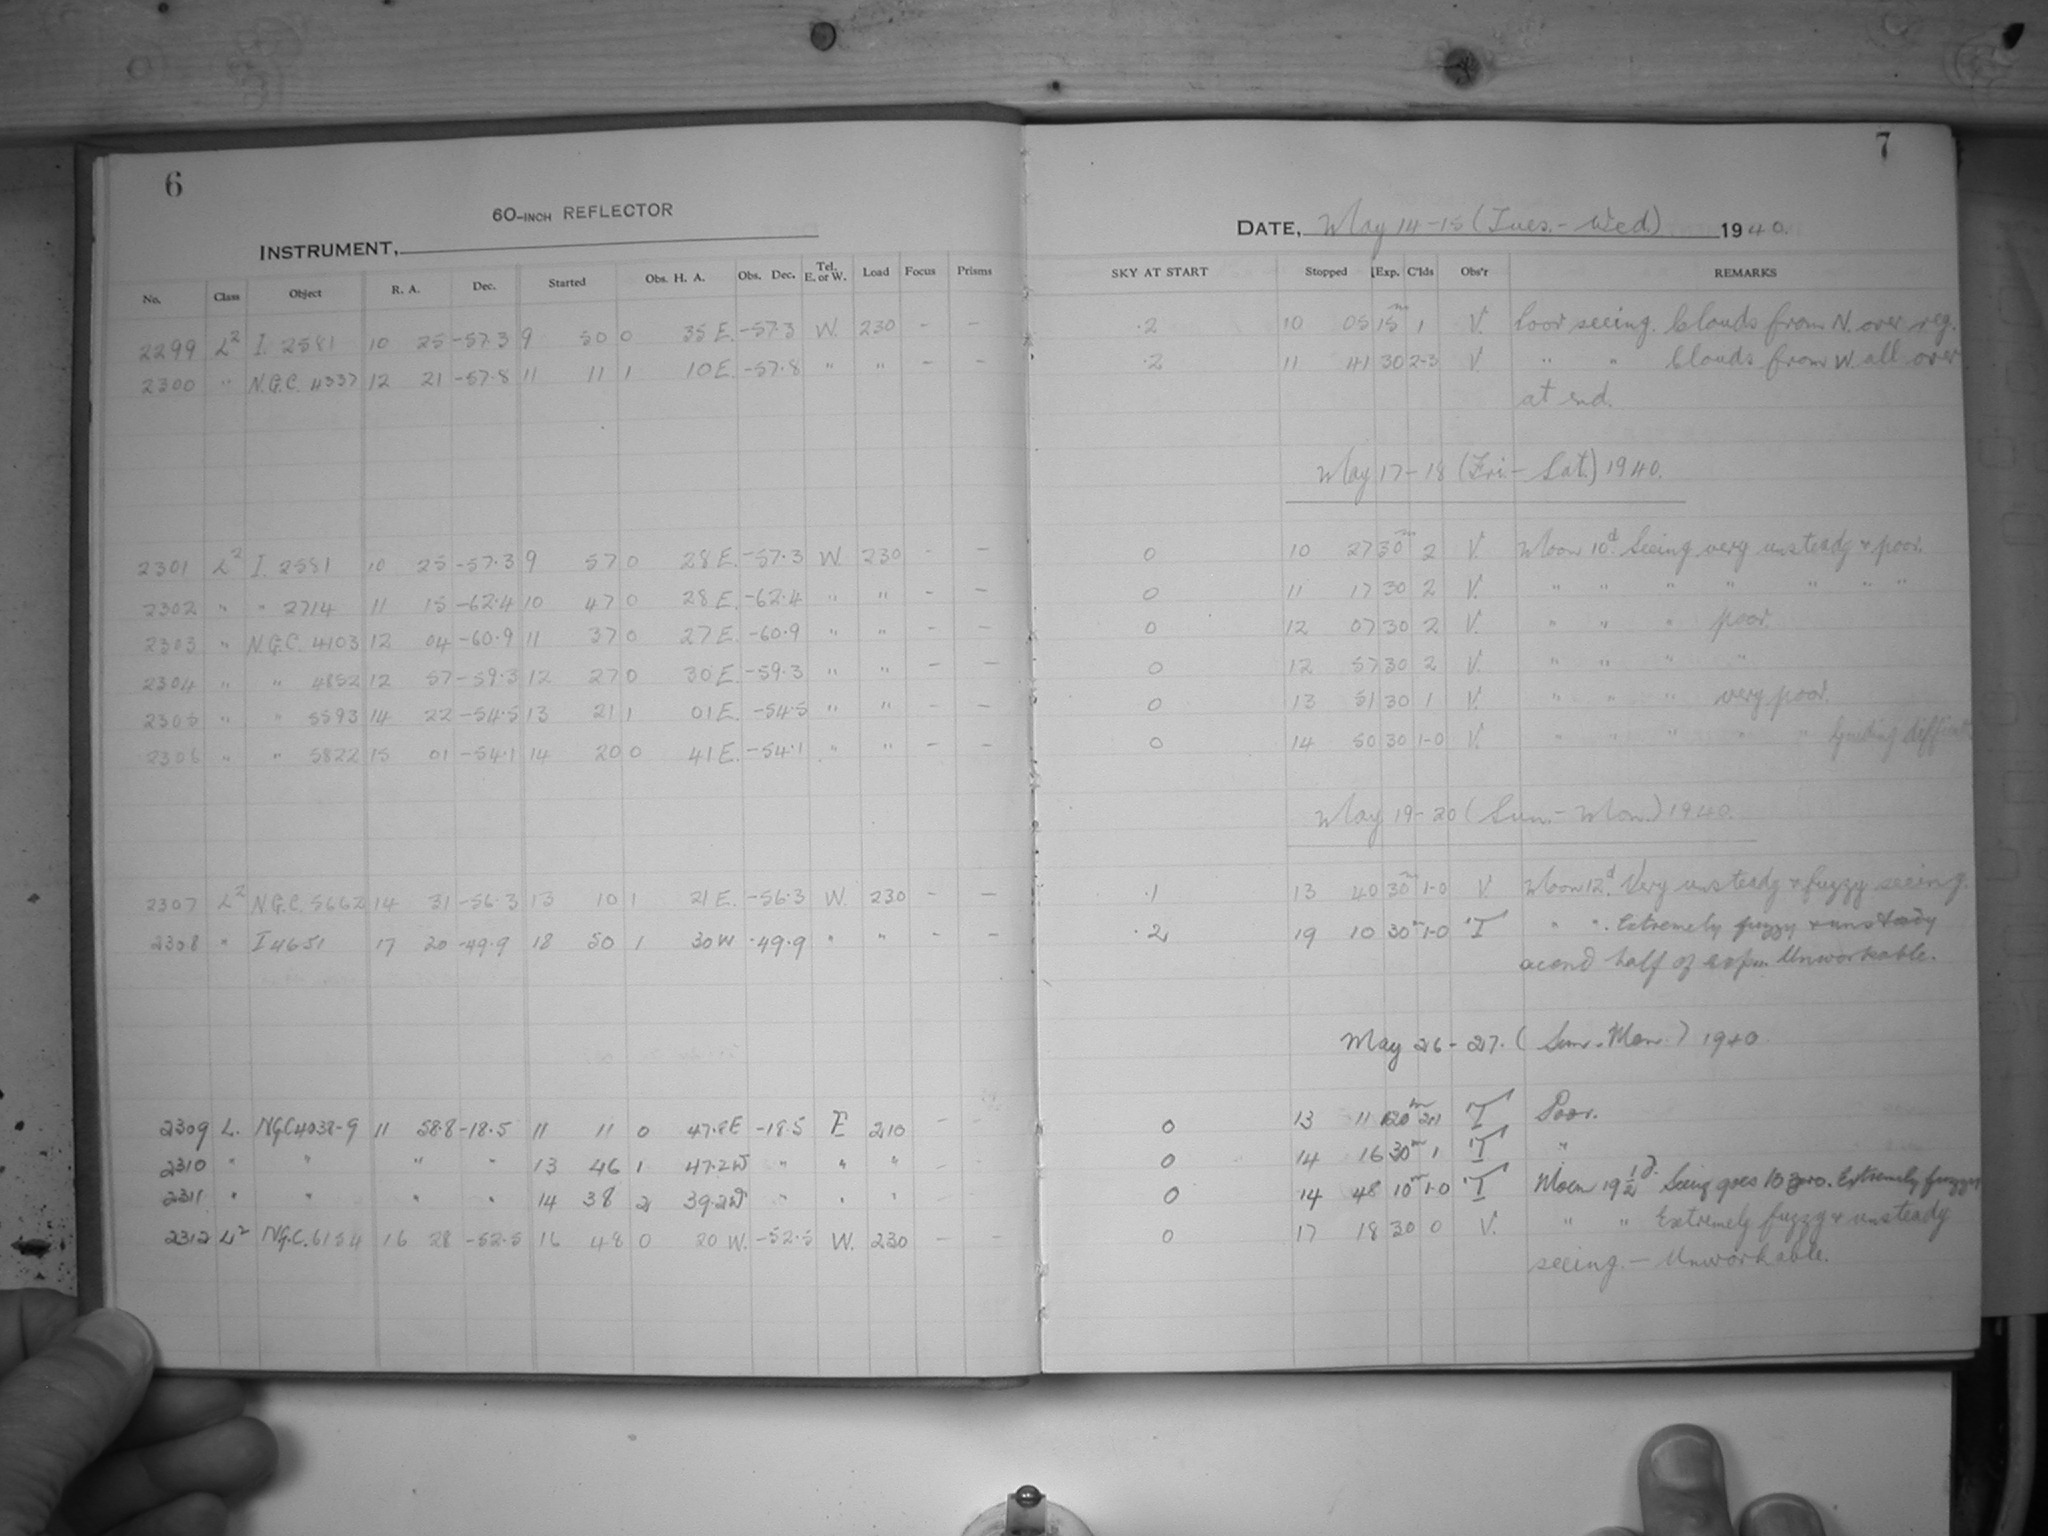 6
60-INCH REFLECTOR
INSTRUMENT,
No. Class Object R. A. Dec. Started Obs. H. A. Obs. Dec. Tel. E. or W. Load Focus Prisms
2299 L2 I. 2581 10 25 -57.3 9 50 0 35 E. -57.3 W. 230 - -
2300 " N.G.C. 4337 12 21 -57.8 11 11 1 10 E. -57.8 " " - -
2301 L2 I. 2581 10 25 -57.3 9 57 0 28 E. -57.3 W. 230 - -
2302 " " 2714 11 15 -62.4 10 47 0 28 E. -62.4 " " - -
2303 " N.G.C. 4103 12 04 -60.9 11 37 0 27 E. -60.9 " " - -
2304 " " 4852 12 57 -59.3 12 27 0 30 E. -59.3 " " - -
2305 " " 5593 14 22 -54.5 13 21 1 01 E. -54.5 " " - -
2306 " " 5822 15 01 -54.1 14 20 0 41 E. -54.1 " " - -
2307 L2 N.G.C. 5662 14 31 -56.3 13 10 1 21 E. -56.3 W. 230 - -
2308 " I 4651 17 20 -49.9 18 50 1 30 W -49.9 " " - -
2309 L. NGC4038-9 11 58.8 -18.5 11 11 0 47.8E -18.5 E 210 - -
2310 " " " " 13 46 1 47.2W " " " - -
2311 " " " " 14 38 2 39.2W " " " - -
2312 L2 N.G.C. 6134 16 28 -52.5 16 48 0 20 W. -52.5 W. 230 - -
7
DATE, May 14-15 (Tues. - Wed.) 1940.
SKY AT START Stopped Exp. C'lds Obs'r REMARKS
.2 10 05 15m 1 V. Poor seeing. Clouds from N. over reg.
.2 11 41 30 2-3 V. " " Clouds from W. all over
at end.
May 17-18 (Fri. - Sat.) 1940.
0 10 27 30m 2 V. Moon 10d. Seeing very unsteady & poor.
0 11 17 30 2 V. " " " " " " "
0 12 07 30 2 V. " " " poor.
0 12 57 30 2 V. " " " "
0 13 51 30 1 V. " " " very poor.
0 14 50 30 1-0 V. " " " " " Guiding difficult
May 19-20 (Sun. - Mon.) 1940.
.1 13 40 30m 1-0 V. Moon 12d. Very unsteady & fuzzy seeing.
.2 19 10 30m 1-0 T " ". Extremely fuzzy & unsteady
second half of exp. Unworkable.
May 26-27. (Sun. - Mon.) 1940
0 13 11 120m 2-1 T Poor.
0 14 16 30m 1 T "
0 14 48 10m 1-0 T Moon 19½d. Seeing goes to zero. Extremely fuzzy
0 17 18 30 0 V. " " Extremely fuzzy & unsteady
seeing. - Unworkable.